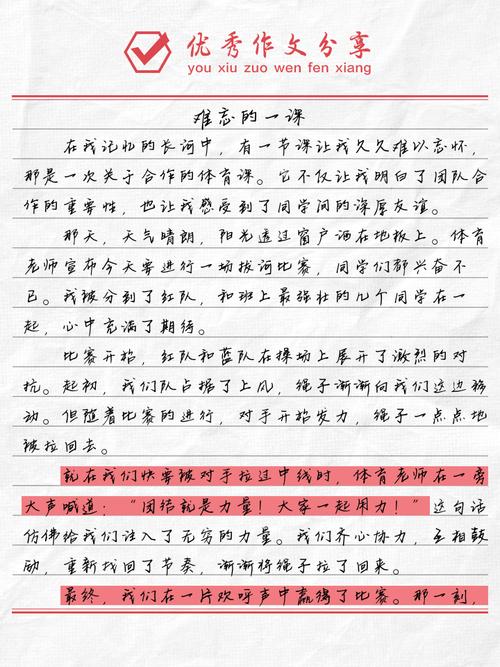 优秀作文分享
you xiu zuo wen fen xiang
难忘的一课
在我记忆的长河中，有一节课让我久久难以忘怀，
那是一次关于合作的体育课。它不仅让我明白了团队合
作的重要性，也让我感受到了同学间的深厚友谊。
那天，天气晴朗，阳光透过窗户洒在地板上。体育
老师宣布今天要进行一场拔河比赛，同学们都兴奋不
已。我被分到了红队，和班上最强壮的几个同学在一
起，心中充满了期待。
比赛开始，红队和蓝队在操场上展开了激烈的对
抗。起初，我们队占据了上风，绳子渐渐向我们这边移
动。但随着比赛的进行，对手开始发力，绳子一点点地
被拉回去。
就在我们快要被对手拉过中线时，体育老师在一旁
大声喊道：“团结就是力量！大家一起用力！”这句话
仿佛给我们注入了无穷的力量。我们齐心协力，互相鼓
励，重新找回了节奏，渐渐将绳子拉了回来。
最终，我们在一片欢呼声中赢得了比赛。那一刻，